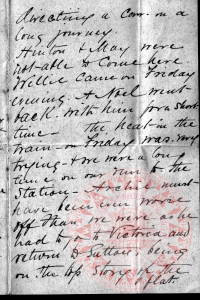 directing a cow. on a
long journey.
Anton & May were
not able to come here
Willie came on Friday
evening. A Noel went
back with him for a short
time — The heat in the
train on Friday was very
trying - & we were a long
time on our run to the
Station - Archie must
have been even worse
off than we were as he
had to go to Victoria and
return to Sutton, being
on the top story of the
flat.